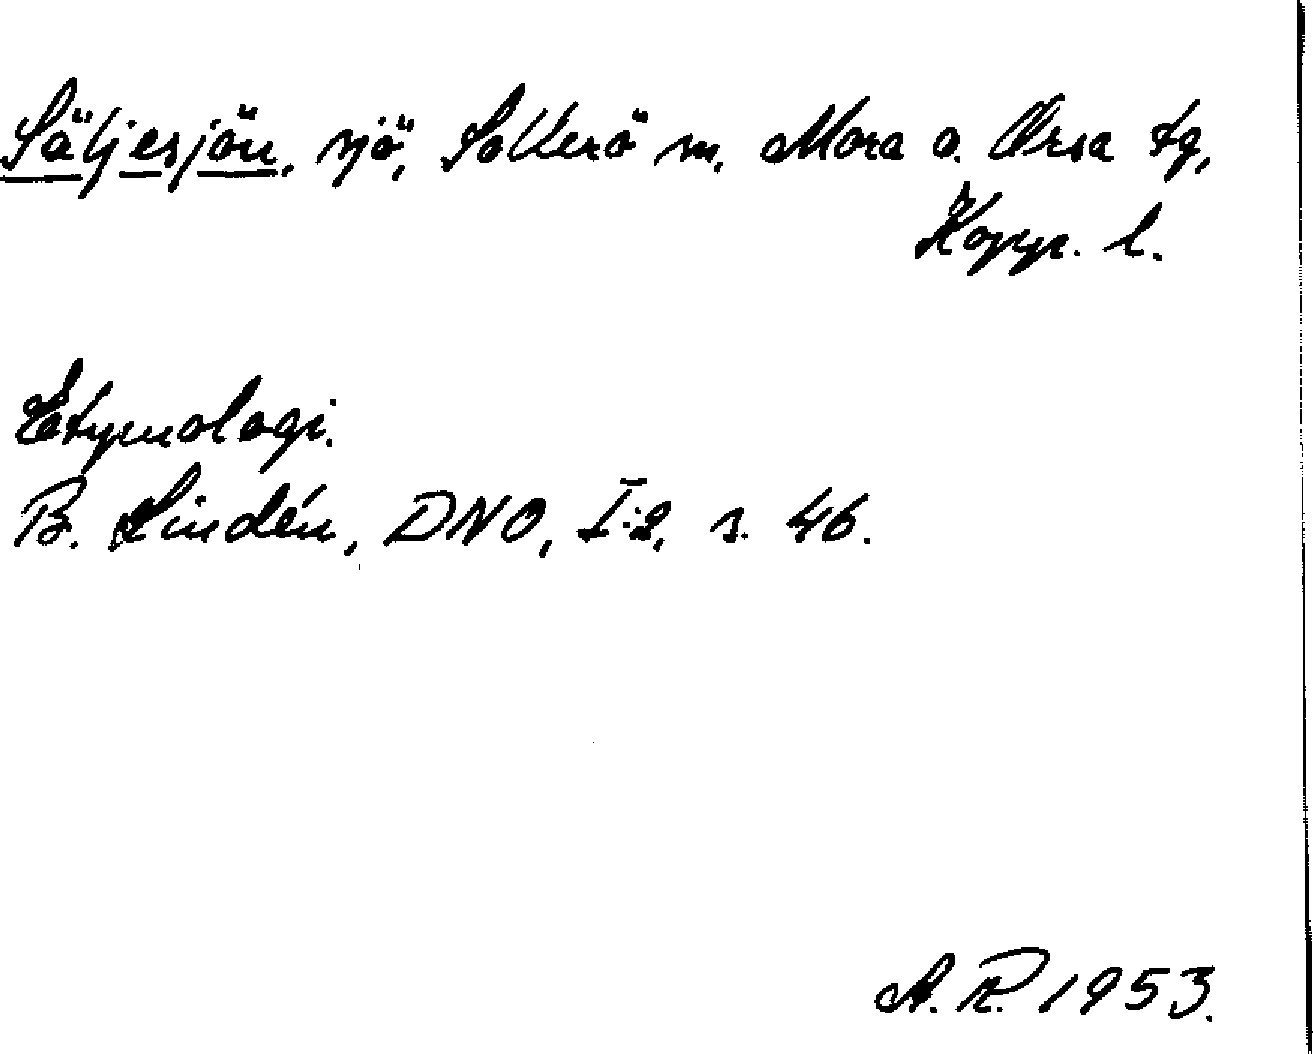 Säljesjön, sjö, Sollerö sn, Mora o. Orsa tg,
Kopp. l.
Etymologi.
B. Lindén, DNO, I:2, s. 46.
A. R. 1953.